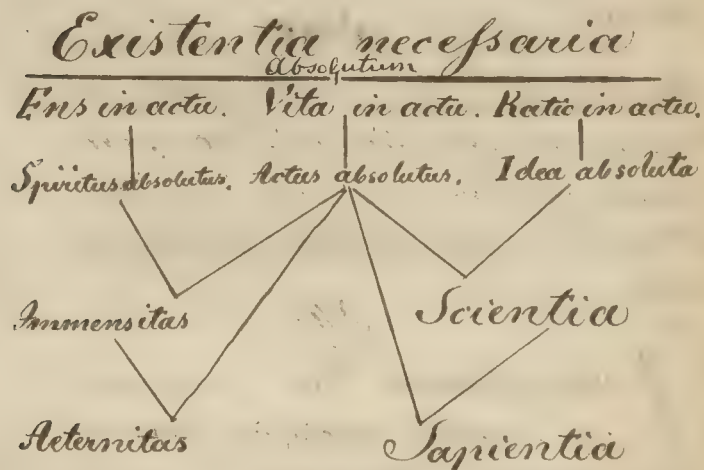 Existentia necessaria
Absolutum
Ens in actu. Vita in actu. Ratio in actu.
Spiritus absolutus. Actus absolutus. Idea absoluta
Immensitas Scientia
Aeternitas Sapientia